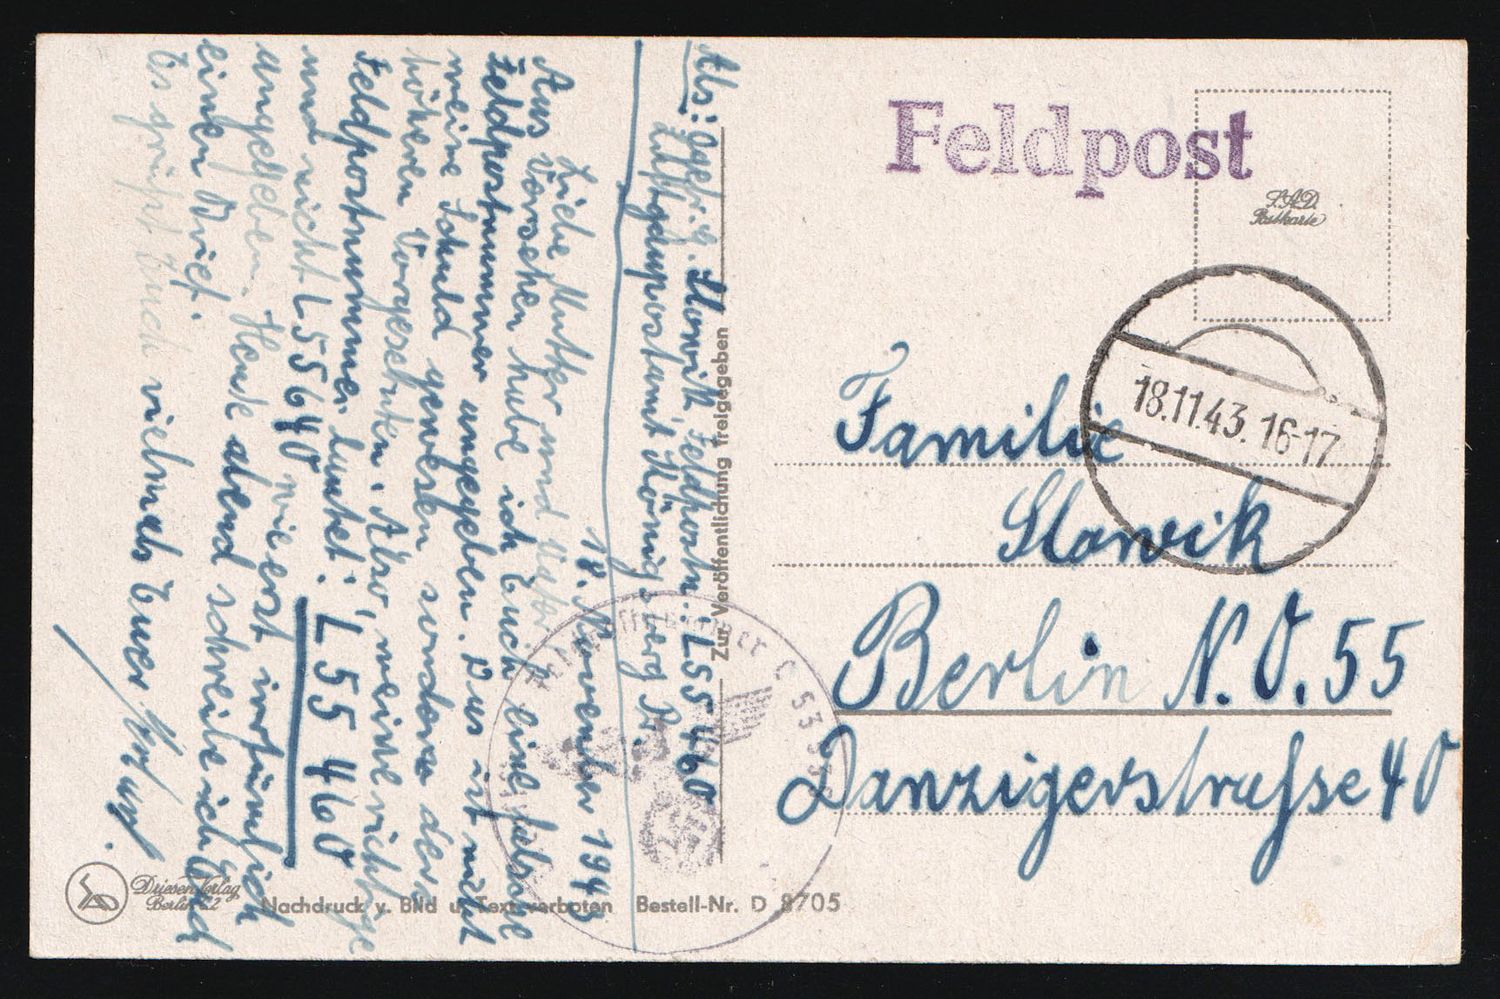 Feldpost
S.A.D.
Postkarte
18.11.43. 16-17
Familie
Slowik
Berlin N.O. 55
Danzigerstraße 40
Abs: Gefr. G. Slowik Feldpostn. L 55 460
Luftgaupostamt Königsberg Pr.
18. November 1943
Liebe Mutter und Vater!
Aus Versehen habe ich Euch eine falsche
Feldpostnummer angegeben. Das ist nicht
meine Schuld gewesen sondern der
höheren Vorgesetzten. Also, meine richtige
Feldpostnummer lautet: L 55 460
und nicht L 55640 wie erst irrtümlich
angegeben. Heute abend schreibe ich Euch
einen Brief.
Es grüßt Euch vielmals Euer
Zur Veröffentlichung freigegeben
Feldpostnummer
Driesen Verlag
Berlin
Nachdruck v. Bild u. Text verboten Bestell-Nr. D 8705